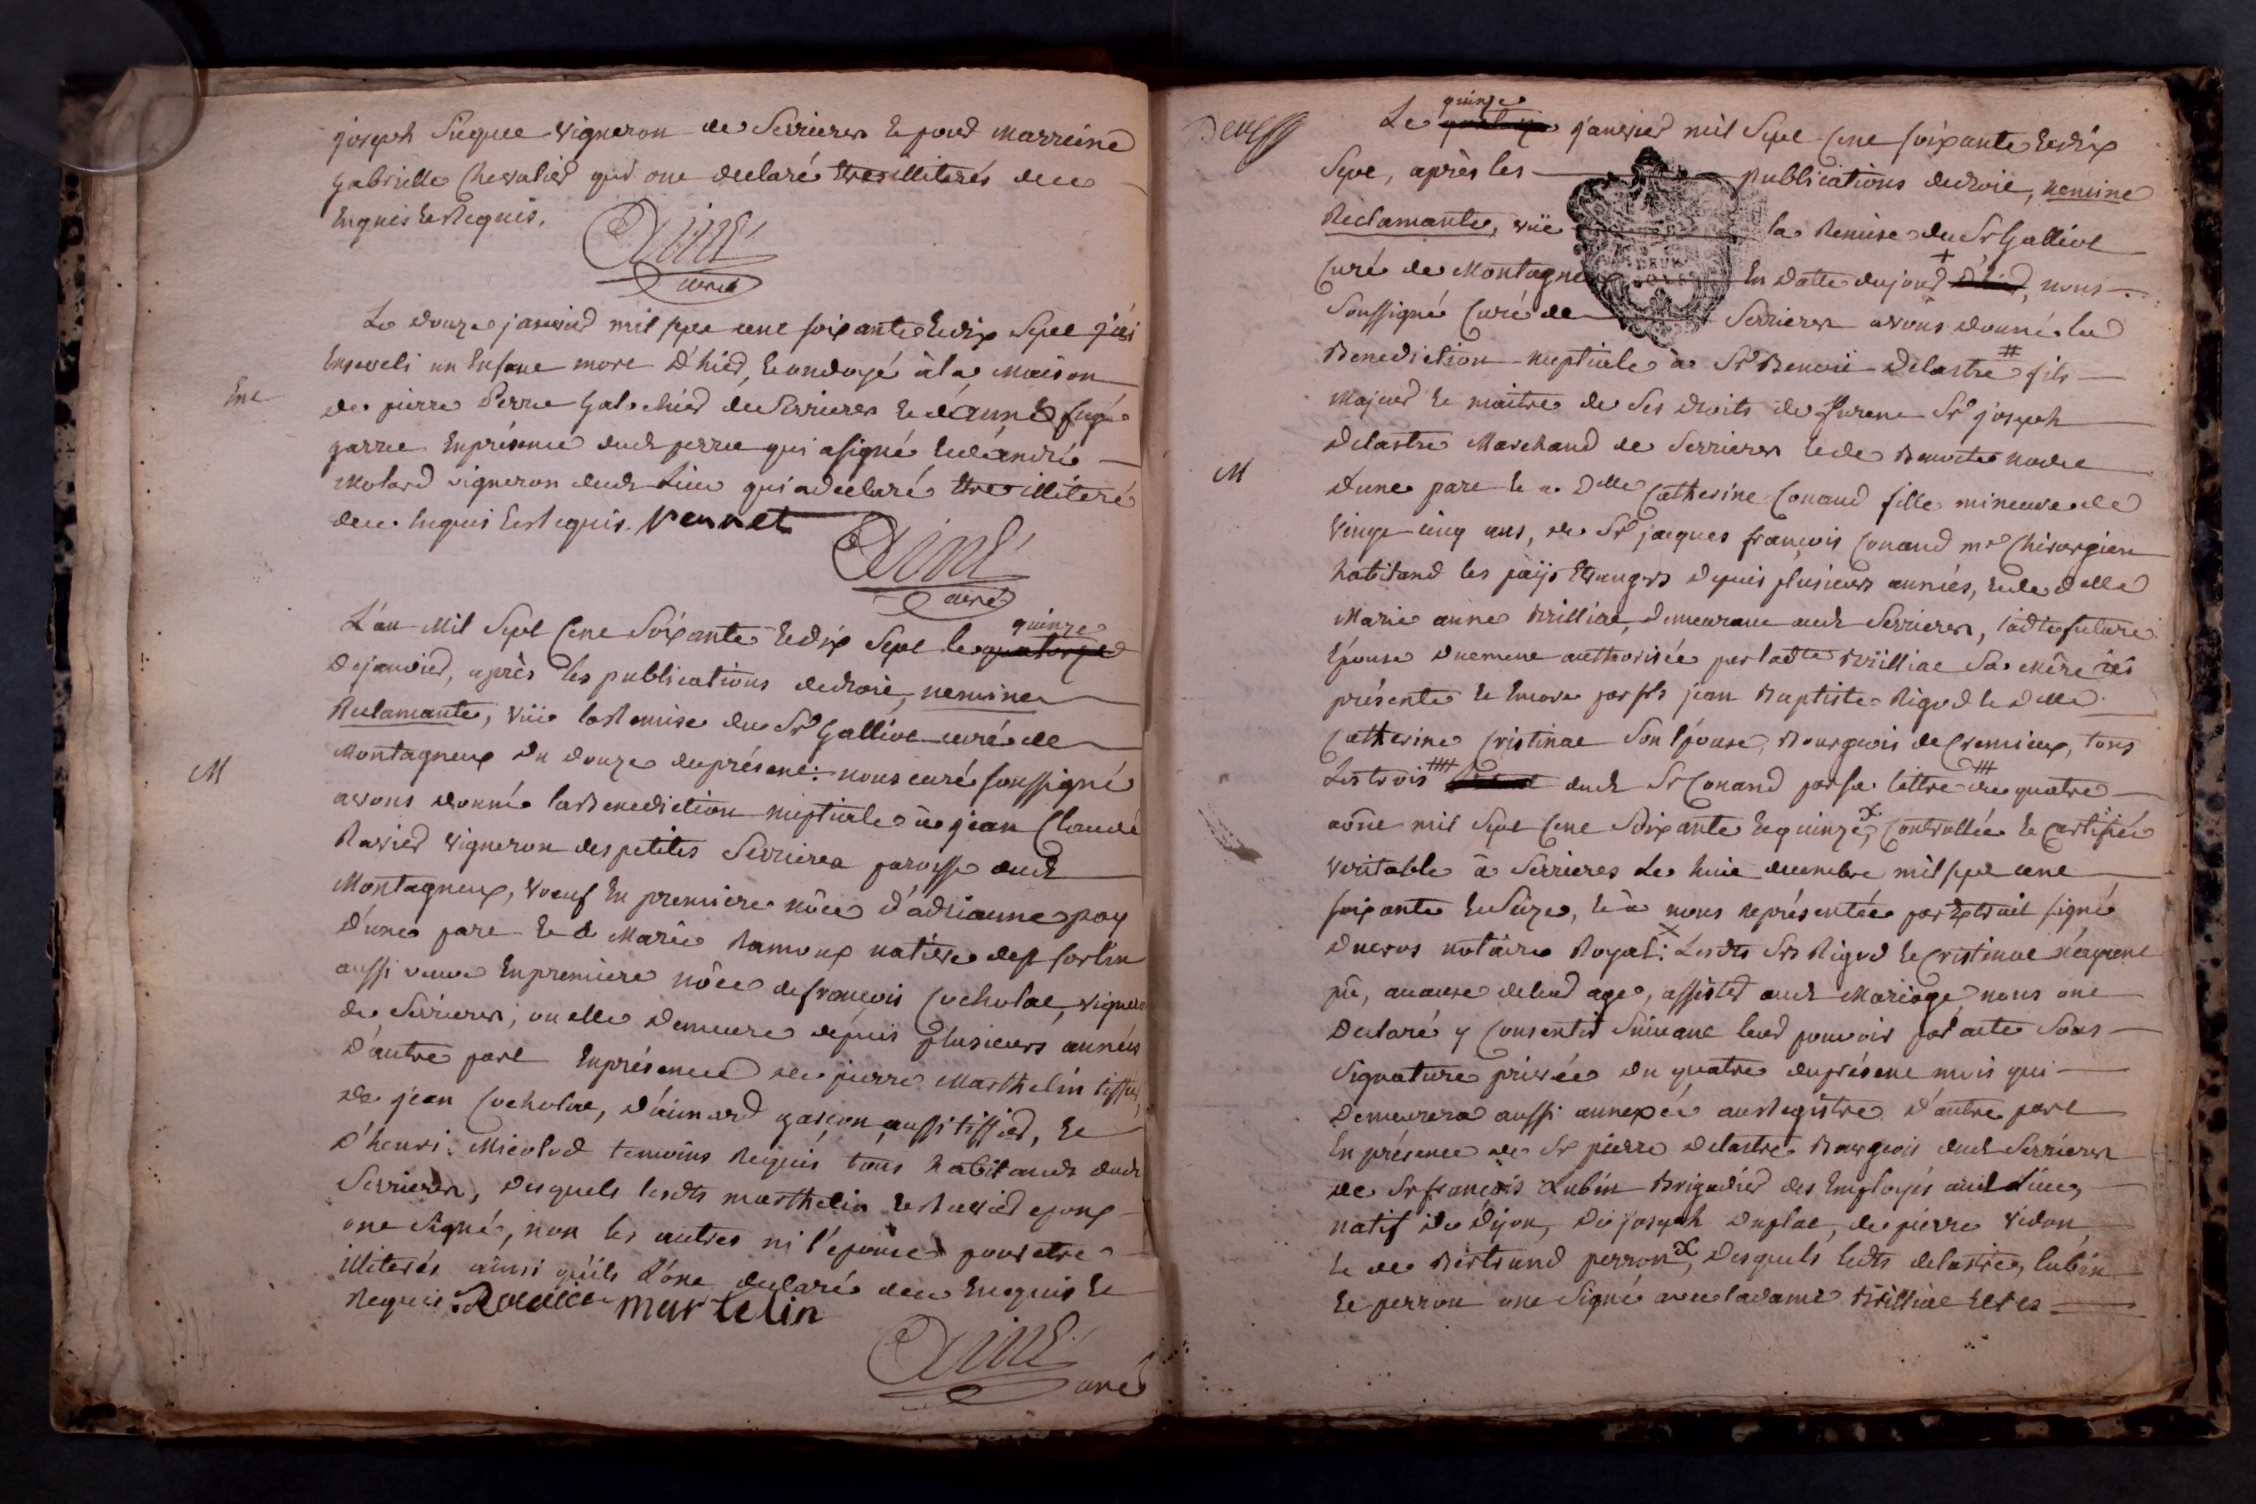 joseph Sieque vigneron de Serrieres et pour marreine
gabrielle Chevalier qui ont declaré etre illiterés de ce
enquis et requis.
Aimé
curé
Le douze janvier mil sept cent soixante et dix sept j'ai
enseveli un enfant mort d'hier, et ondoyé à la maison
Ent
de pierre perret galochier de Serrieres et d'anne
garret en présence dudt perret qui a signé et d'andré
Molard vigneron dudt Lieu qui a declaré etre illiteré
de ce enquis et requis. perret
Aimé
curé
quinze
L'an Mil Sept Cent Soixante et dix Sept le quatorze
de janvier, après les publications de droit, nemine
Reclamante, vüe la Remise du Sr Galliot curé de
Montagneux du douze du présent: nous curé soussigné
M
avons donné la Benediction nuptiale à jean Claude
Ravier vigneron des petites Serrieres paroisse dudt
Montagneux, veuf en premiere nôce d'adrianne pay
d'une part et à Marie Ramoux native de st sorlin
aussi veuve en premiere nôce de françois Cocholat, vigneron
de Serrieres, ou elle demeure depuis plusieurs années
d'autre part en présence de pierre Marthelin tissier,
de jean Cocholat, d'aimard garçon aussi tissier, et
d'henri Micolod temoins Requis tous habitands dudt
Serrieres, desquels lesdts marthelin et Ravier epoux
ont signé, non les autres ni l'epouse pour etre
illiterés ainsi qu'ils l'ont declaré de ce enquis et
Requis. Ravier martelin
Aimé
curé
Deux
quinze
Le quatorze janvier mil Sept Cent soixante et dix
Sept, après les publications de droit, nemine
Reclamante, vüe la Remise du Sr Galliot
Curé de Montagneux en datte du jour + d'hier, nous
soussigné Curé de Serrieres avons donné la
Benediction nuptiale à Sr Benoit Delastre # fils
majeur et maitre de ses droits de Sr joseph
Delastre Marchand de Serrieres et de Benoite
M
d'une part et a Dlle Catherine Conand fille mineure de
vingt cinq ans, de Sr jacques françois Conand me Chirurgien
habitand les païs étrangers depuis plusieurs années, et de dlle
Marie anne Brilliat, demeurant audt Serrieres, ladte future
épouse duement authorisée par ladte Brilliat sa mère ici
présente et encore par jean Baptiste Rigod et dlle
Catherine Cristinat son épouse, Bourgeois de Cremieux, tous
les trois #### dudt Sr Conand par sa lettre ### du quatre
aôut mil Sept Cent Soixante et quinze x, Controllée et certifiée
veritable à Serrieres le huit decembre mil sept cent
soixante et Seize, et à nous représentée par extrait signé
notaire Royal: x Lesdts Srs Rigod et Cristinat n'ayant
pû, a cause de leur age, assister audt Mariage nous ont
Declaré y Consentir suivant leur pouvoir par acte sous
signature privée du quatre du présent mois qui
demeurera aussi annexée au Registre. d'autre part
en présence de Sr pierre delastre Bourgeois dudt Serrieres
de Sr françois Lubin Brigadier des Employés audt Lieu,
natif de Dijon, de joseph Duplat, de pierre vidon,
et de Bertrand perron x, desquels lesdts delastre, lubin
et perron ont signé avec ladame Brilliat et les